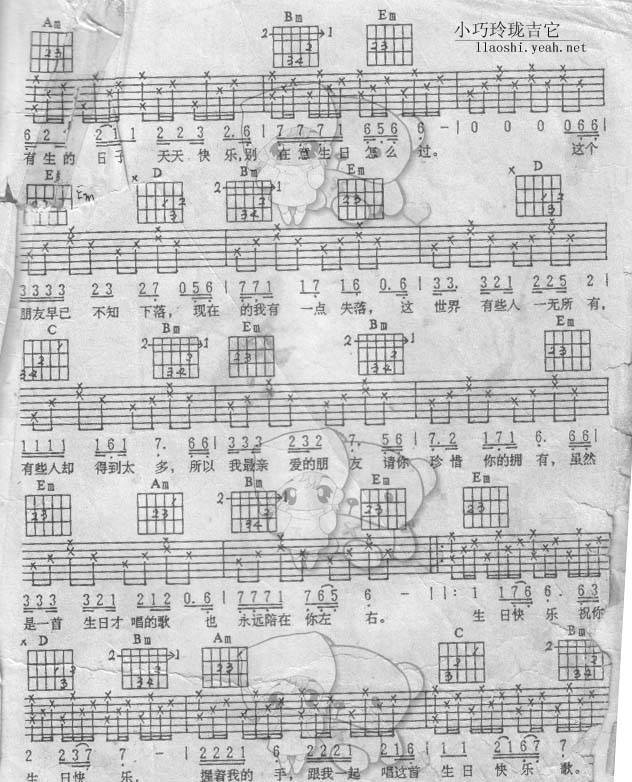 小巧玲珑吉它
llaoshi.yeah.net
Am Bm Em
2 1
6 2 · 2 1 1 2 2 3 2. 6 | 7 7 7 1 6 5 6 6 — | 0 0 0 0 6 6 |
有生的 日子 天天 快乐,别 在意生日 怎么 过。 这个
Em D Bm Em D
3 3 3 3 3. 2 7 0 5 6 | 7 7 1 1 7 1 6 0. 6 | 3 3. 3 2 1 2 2 5 2 |
朋友早已 不知 下落, 现在 的我有 一点 失落, 这 世界 有些人 一无所有,
C Bm Em Bm Em
1 1 1 1 1 6 1 7. 6 6 | 3 3. 3 2 3 2 7. 5 6 | 7. 2 1 7 1 6. 6 6 |
有些人却 得到太 多, 所以 我最亲 爱的朋 友 请你 珍惜 你的拥 有, 虽然
Em Am Bm Em Em
3 3 3 3 2 1 2 1 2 0. 6 | 7 7 7 1 7 6 5 6 — ||: 1 1 7 6 6. 6 3
是一首 生日才 唱的歌 也 永远陪在 你左 右。 生 日快 乐 祝你
D Bm Am C Bm
2 2 3 7 7 — | 2 2 2 1 6. 2 2 2 1 | 1 1 2 1 6 7 7
生 日快 乐, 握着我的 手, 跟我一起 唱这首 生 日快乐 歌。